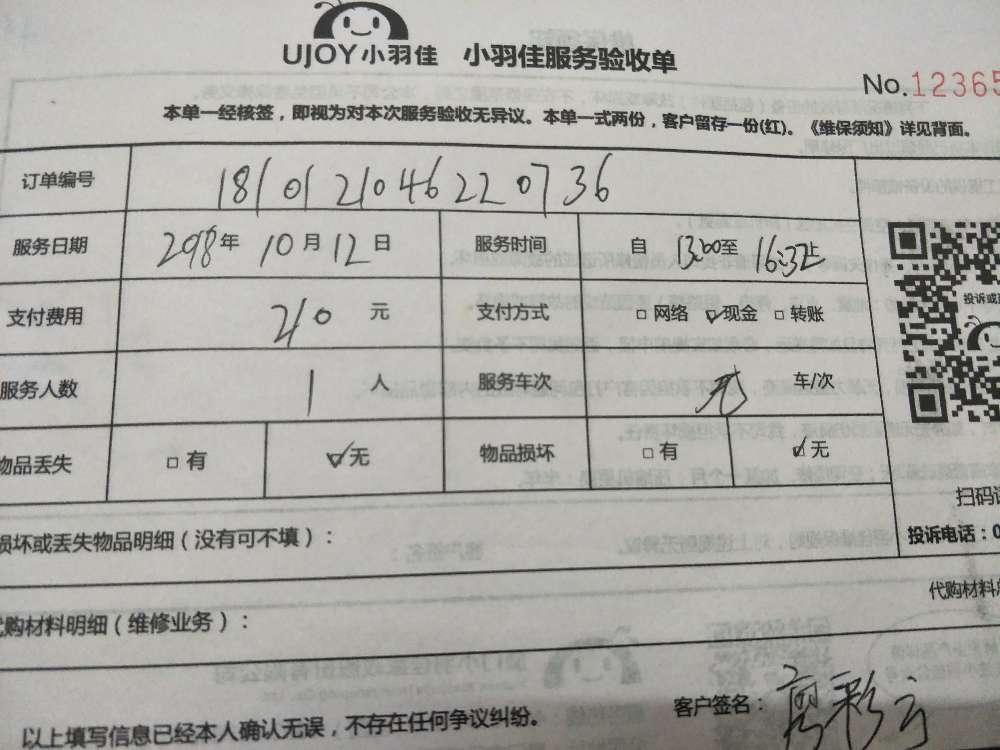 UJOY小羽佳 小羽佳服务验收单
No.12365
本单一经核签，即视为对本次服务验收无异议。本单一式两份，客户留存一份(红)。《维保须知》详见背面。
订单编号 1810121046220736
服务日期 2018年10月12日 服务时间 自 13:00至 16:32止
支付费用 210 元 支付方式 □网络 ☑现金 □转账
服务人数 1 人 服务车次 无 车/次
物品丢失 □有 ☑无 物品损坏 □有 ☑无
投诉或
扫码
损坏或丢失物品明细（没有可不填）：
投诉电话：0
代购材料明细（维修业务）：
代购材料
以上填写信息已经本人确认无误，不存在任何争议纠纷。
客户签名： 彩云